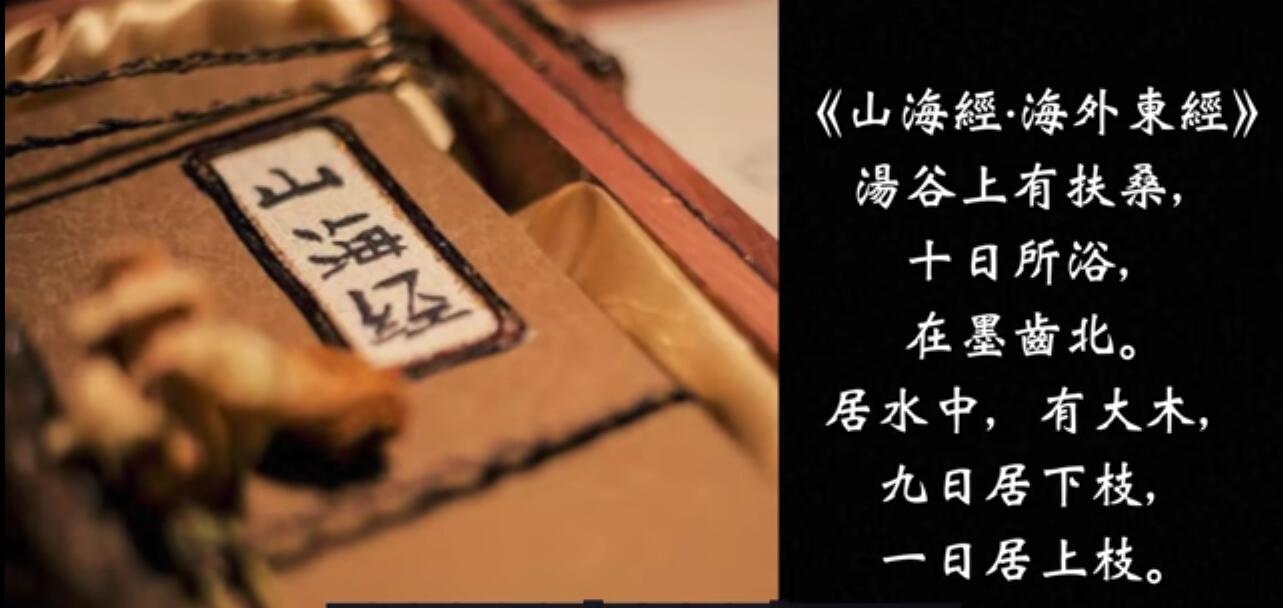 山海经
《山海經·海外東經》
湯谷上有扶桑，
十日所浴，
在墨齒北。
居水中，有大木，
九日居下枝，
一日居上枝。